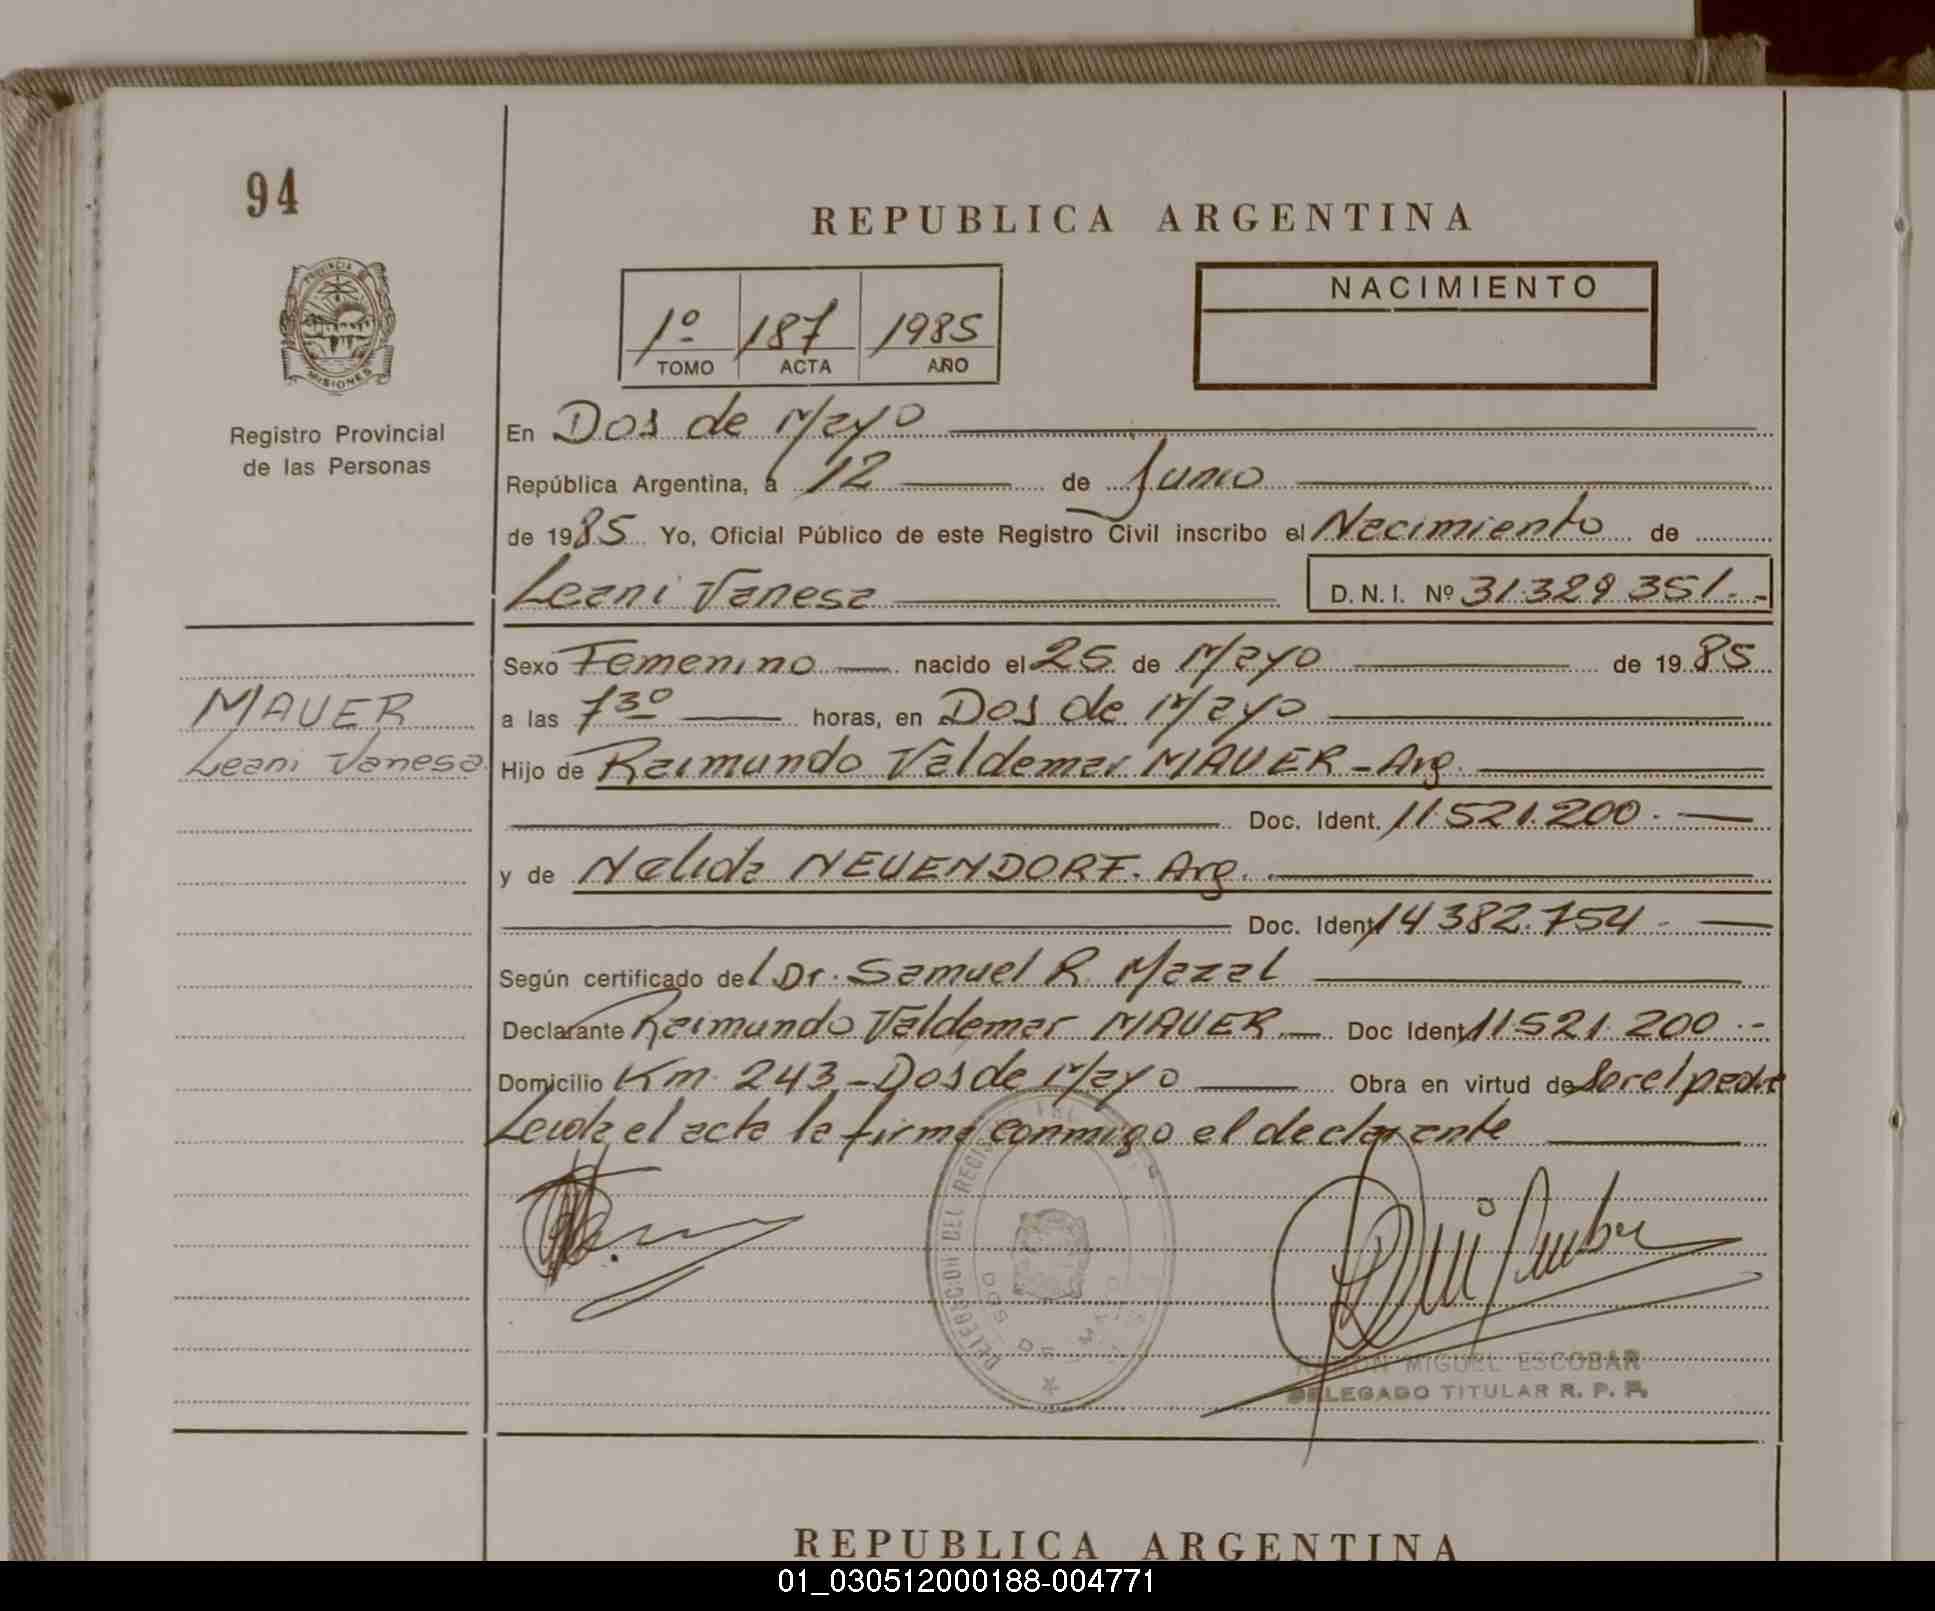 94
REPUBLICA ARGENTINA
PROVINCIA DE
MISIONES
Registro Provincial
de las Personas
1º 187 1985
TOMO ACTA AÑO
NACIMIENTO
En Dos de Mayo
República Argentina, a 12 de Junio
de 1985 Yo, Oficial Público de este Registro Civil inscribo el Nacimiento de
Leani Vanesa D.N.I. Nº 31.329.351.-
Sexo Femenino nacido el 25 de Mayo de 1985
MAUER
Leani Vanesa
a las 7 30 horas, en Dos de Mayo
Hijo de Raimundo Valdemar MAUER - Arg.
Doc. Ident. 11.521.200.-
y de Nelida NEUENDORF. Arg.
Doc. Ident. 14.382.754.-
Según certificado del Dr. Samuel R. Mazal
Declarante Raimundo Valdemar MAUER Doc Ident. 11.521.200.-
Domicilio Km. 243 - Dos de Mayo Obra en virtud de ser el padre
Leida el acta la firma conmigo el declarante
DELEGACION DEL
DOS DE MAYO
MIGUEL ESCOBAR
DELEGADO TITULAR R. P. P.
REPUBLICA ARGENTINA
01_030512000188-004771